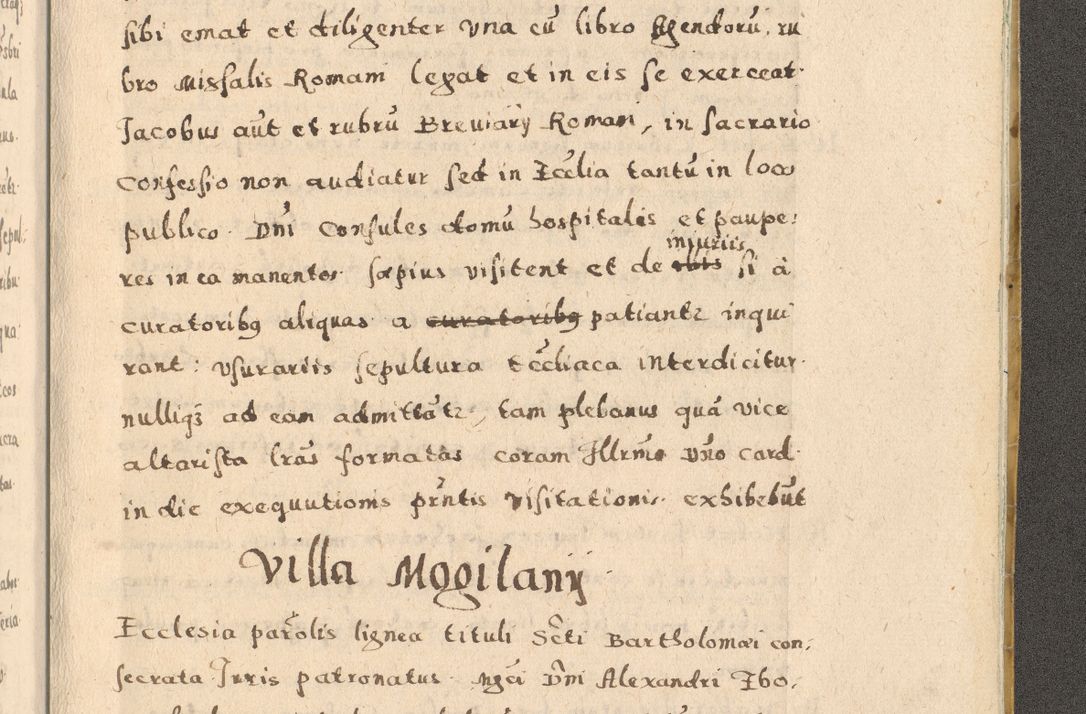 sibi emat et diligenter vna cū libro Agendorū, ru
bro Missalis Romani legat et in eis se exerceat
Jacobus aūt et rubrū Breuiarÿ Romani, in sacrario
Confessio non audiatur sed in Eccłia tantū in loco
publico. Dn̄i Consules domū hospitalis et paupe:
res in ea manentes sæpius visitent et de iniuriis si à
curatoribꝫ aliquas a curatoribꝫ patiantꝛ inqui
rant: Vsurariis sepultura eccłiaca interdicitur
nulliqꝫ ad eam admittātꝛ, tam plebanus quā vice
altarista lrās formatas coram Illrm̄o Dn̄o Card.
in die exequutionis prn̄tis visitationis exhibebūt
Villa Mogilanÿ
Ecclesia parōlis lignea tituli Scti Bartholomæi con,
secrata Juris patronatus Mgci Dn̄i Alexandri Zbo,